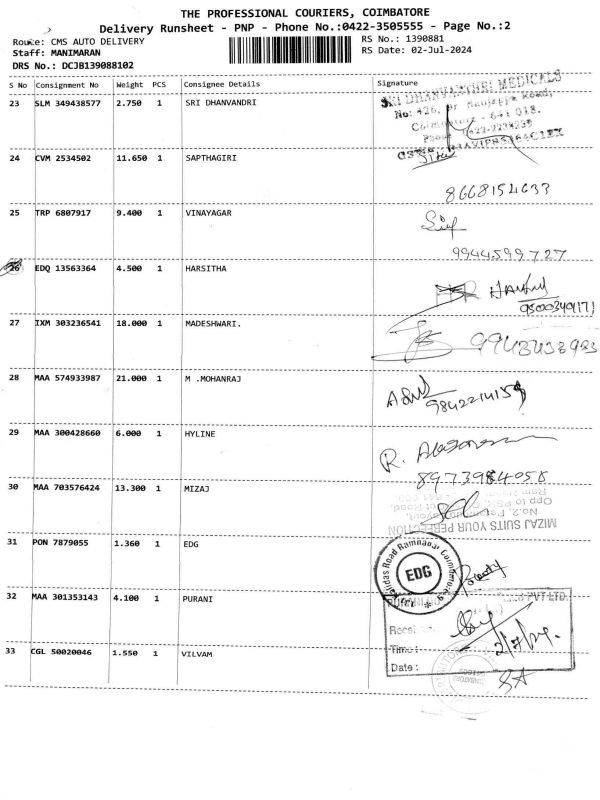 THE PROFESSIONAL COURIERS, COIMBATORE
Delivery Runsheet - PNP - Phone No.:0422-3505555 - Page No.:2
Route: CMS AUTO DELIVERY
RS No.: 1390881
Staff: MANIMARAN
RS Date: 02-Jul-2024
DRS No.: DCJB139088102
S No Consignment No Weight PCS Consignee Details Signature
23 SLM 349438577 2.750 1 SRI DHANVANDRI
SRI DHANVANTHRI MEDICALS
No: 426,
Road,
641 018.
24 CVM 2534502 11.650 1 SAPTHAGIRI
8668154633
25 TRP 6807917 9.400 1 VINAYAGAR
9944599727
26 EDQ 13563364 4.500 1 HARSITHA
27 IXM 303236541 18.000 1 MADESHWARI.
28 MAA 574933987 21.000 1 M .MOHANRAJ
29 MAA 300428660 6.000 1 HYLINE
R.
8973984058
30 MAA 703576424 13.300 1 MIZAJ
Opp to
No.2,
MIZAJ SUITS YOUR PERFECTION
31 PON 7879055 1.360 1 EDG
Road Ramnagar Coimbatore-9
EDG
32 MAA 301353143 4.100 1 PURANI
PVT LTD.
Time:
Date:
33 CGL 50020046 1.550 1 VILVAM